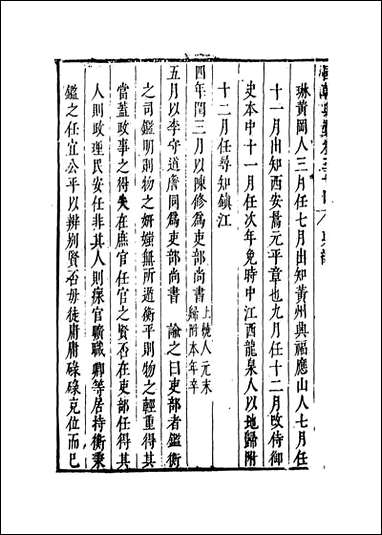 琳黃岡人三月任七月由知黃州興福應山人七月任
十一月由知西安喬元平章也九月任十二月改侍御
史本中十一月任次年免時中江西龍泉人以地歸附
十二月任尋知鎮江
四年閏三月以陳修為吏部尚書上饒人元末歸附本年卒
五月以李守道詹同為吏部尚書 諭之曰吏部者鑑衡
之司鑑明則物之妍媸無所逃衡平則物之輕重得其
當蓋政事之得失在庶官任官之賢否在吏部任得其
人則政理民安任非其人則瘝官曠職卿等居持衡秉
鑑之任宜公平以辨別賢否毋徒庸庸碌碌克位而已